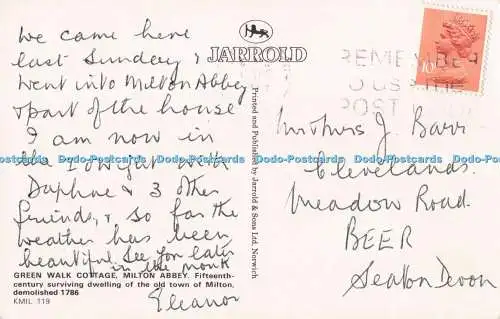 We came here
last Sunday &
went into Milton Abbey
& part of the house
I am now in
the with
Daphne & 3 other
friends, & so far the
weather has been
beautiful. See you later
in the month
Eleanor
GREEN WALK COTTAGE, MILTON ABBEY. Fifteenth-
century surviving dwelling of the old town of Milton,
demolished 1786
KMIL 119
JARROLD
Printed and Published by Jarrold & Sons Ltd. Norwich
REMEMBER
TO USE THE
POST
10
J. Barr
Clevelands
Meadow Road.
BEER
Seaton Devon
Dodo-Postcards Dodo-Postcards Dodo-Postcards Dodo-Postcards Dodo-Postcards Dodo-Postcards